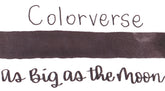 Colorverse
As Big as the Moon